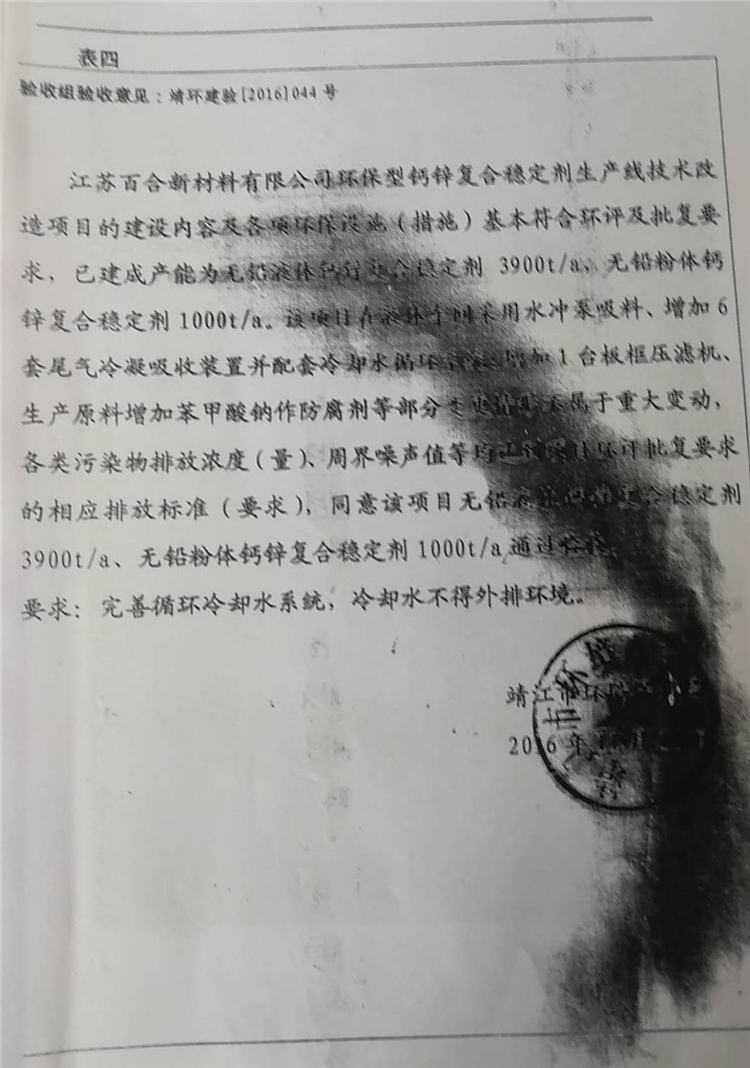 表四
验收组验收意见：靖环建验[2016]044号
江苏百合新材料有限公司环保型钙锌复合稳定剂生产线技术改
造项目的建设内容及各项环保设施（措施）基本符合环评及批复要
求，已建成产能为无铅液体钙锌复合稳定剂 3900t/a、无铅粉体钙
锌复合稳定剂1000t/a。该项目在液体车间采用水冲泵吸料、增加6
套尾气冷凝吸收装置并配套冷却水循环 增加1台板框压滤机、
生产原料增加苯甲酸钠作防腐剂等部分变更 属于重大变动，
各类污染物排放浓度（量）、周界噪声值等均 环评批复要求
的相应排放标准（要求），同意该项目无铅液体钙锌复合稳定剂
3900t/a、无铅粉体钙锌复合稳定剂1000t/a通过
要求：完善循环冷却水系统，冷却水不得外排环境。
靖江市环
2016年